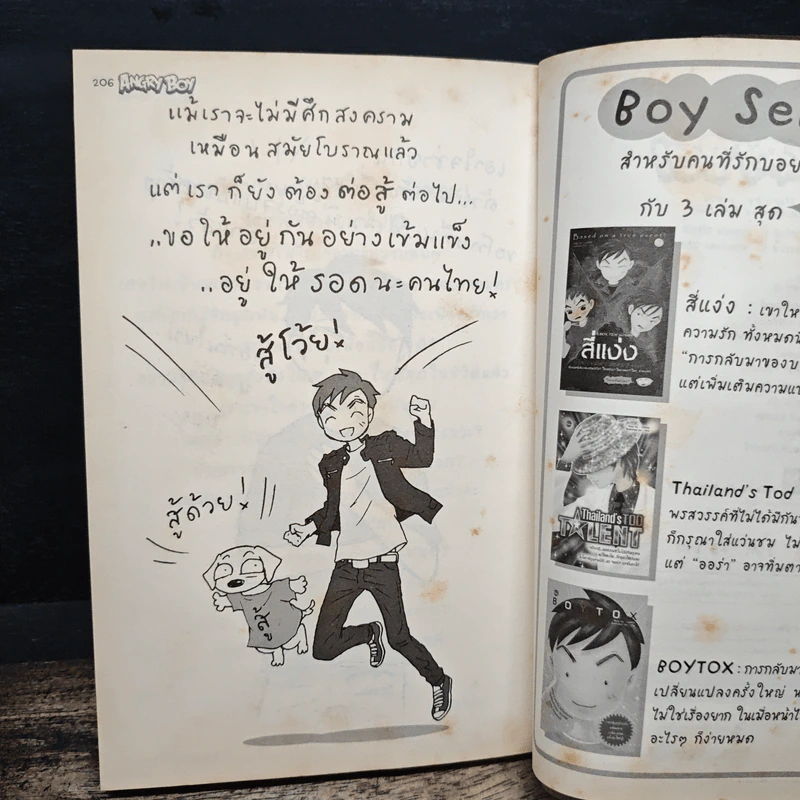 206 ANGRY BOY
แม้เราจะไม่มีศึกสงคราม
เหมือนสมัยโบราณแล้ว
แต่เราก็ยังต้องต่อสู้ต่อไป...
..ขอให้อยู่กันอย่างเข้มแข็ง
..อยู่ให้รอดนะคนไทย!
สู้โว้ย!
สู้ด้วย!
สู้
Boy Se
สำหรับคนที่รักบอย
กับ 3 เล่ม สุด
Based on a true event
สี่แง่ง
สี่แง่ง : เขาให
ความรัก ทั้งหมด
"การกลับมาของบ
แต่เพิ่มเติมความแ
Thailand's TOD
TALENT
Thailand's Tod
พรสวรรค์ที่ไม่ได้มีกัน
ก็กรุณาใส่แว่นชม ไม
แต่ "ออร่า" อาจทิ่มตา
BOYTOX
BOYTOX : การกลับมา
เปลี่ยนแปลงครั้งใหญ่ ห
ไม่ใช่เรื่องยาก ในเมื่อหน้าไ
อะไรๆ ก็ง่ายหมด